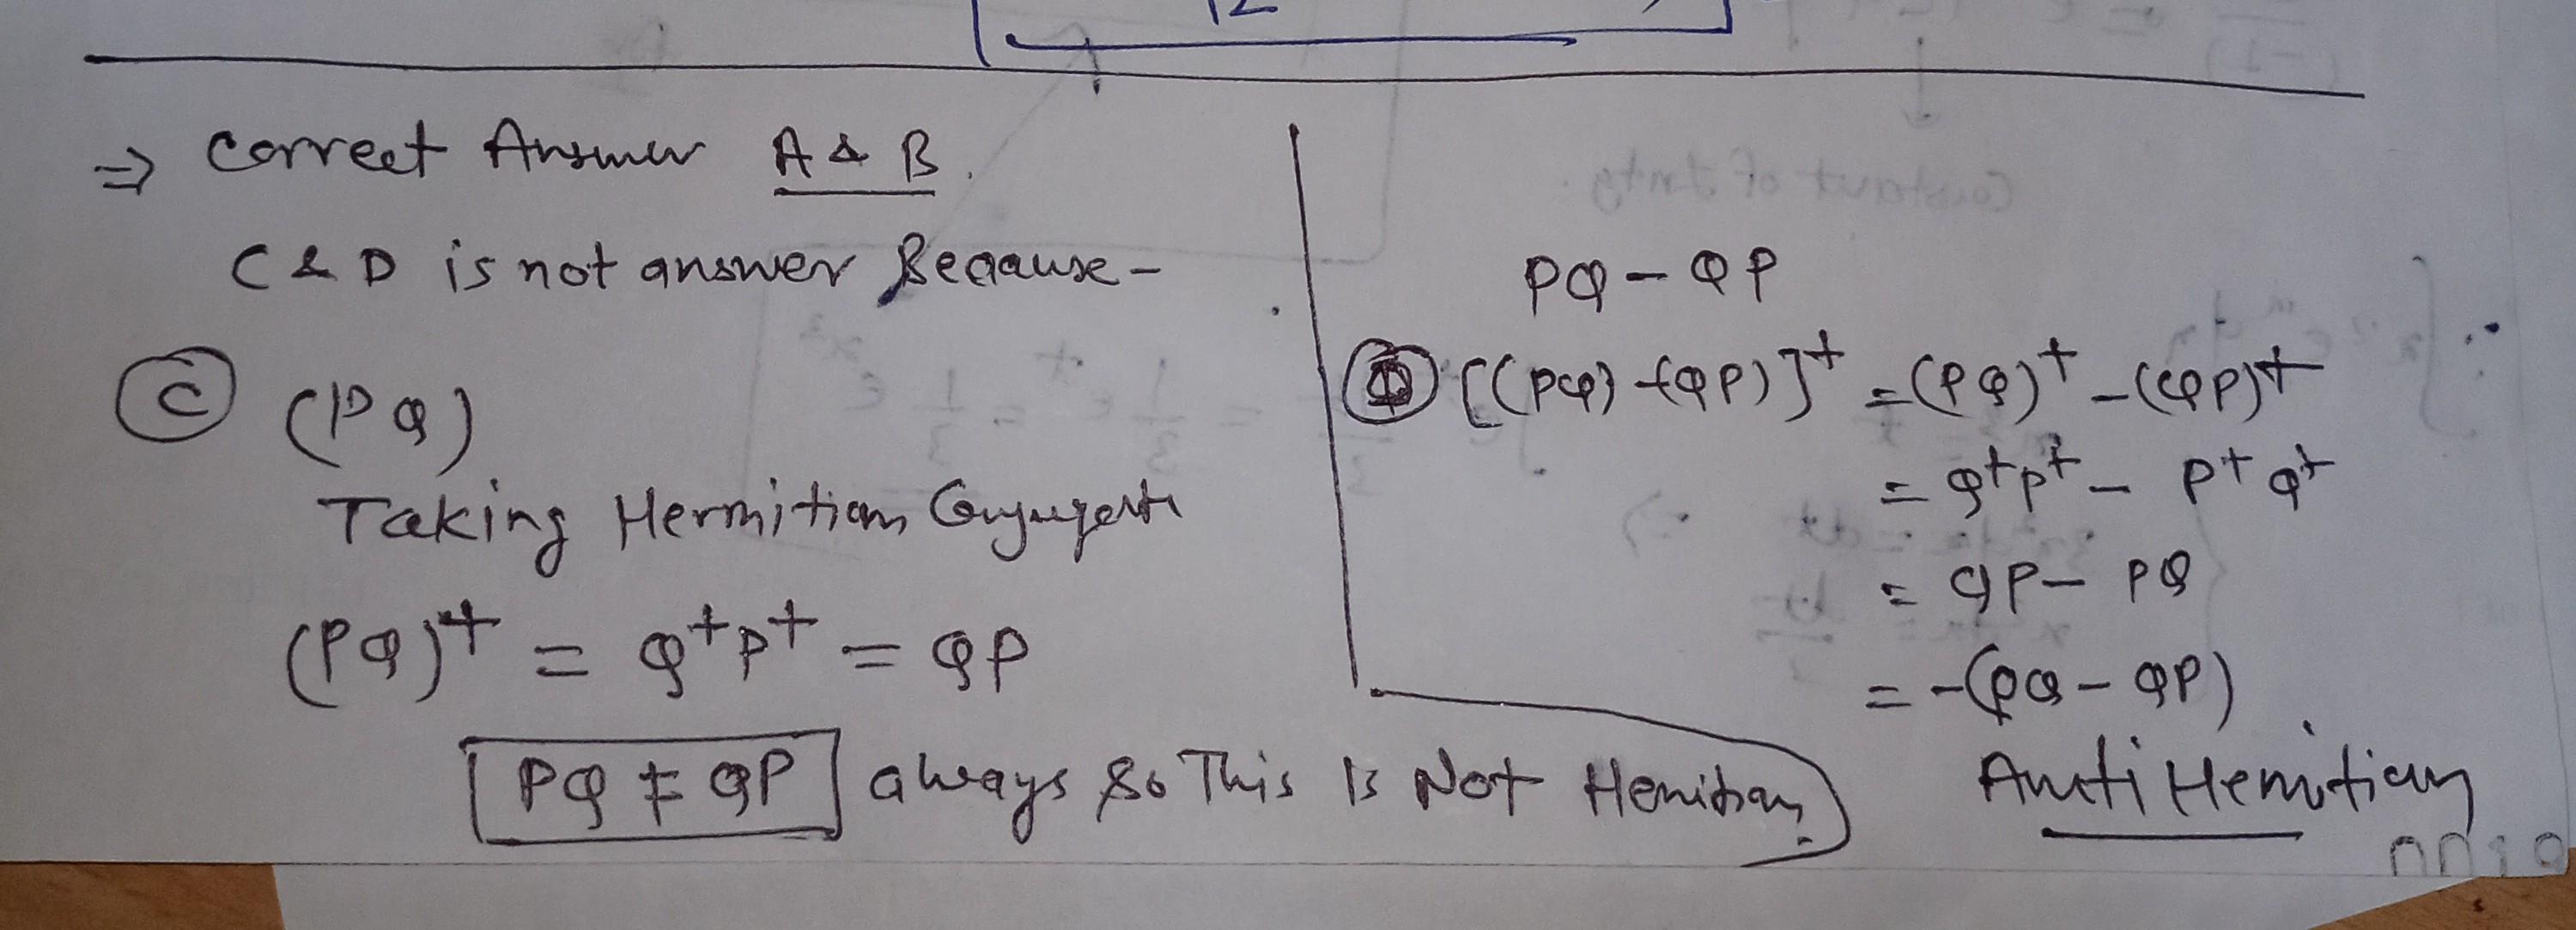 12
⇒ Correct Answer A & B.
C & D is not answer Beacause -
Ⓒ (PQ)
Taking Hermitian Conjugate
(PQ)⁺ = Q⁺P⁺ = QP
PQ ≠ QP always so This Is Not Hemitian
PQ - QP
Ⓓ [(PQ) - (QP)]⁺ = (PQ)⁺ - (QP)⁺
= Q⁺P⁺ - P⁺Q⁺
= QP - PQ
= -(PQ - QP)
Anti Hemitian